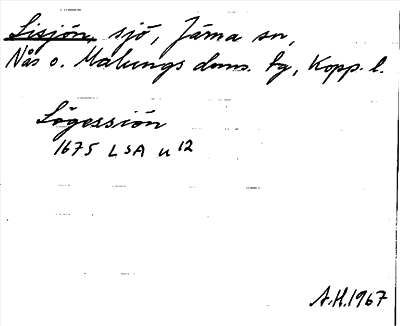 Lisjön, sjö, Järna sn,
Nås o. Malungs doms. tg, Kopp. l.
Lögessiön
1675 LSA U 12
A.H. 1967